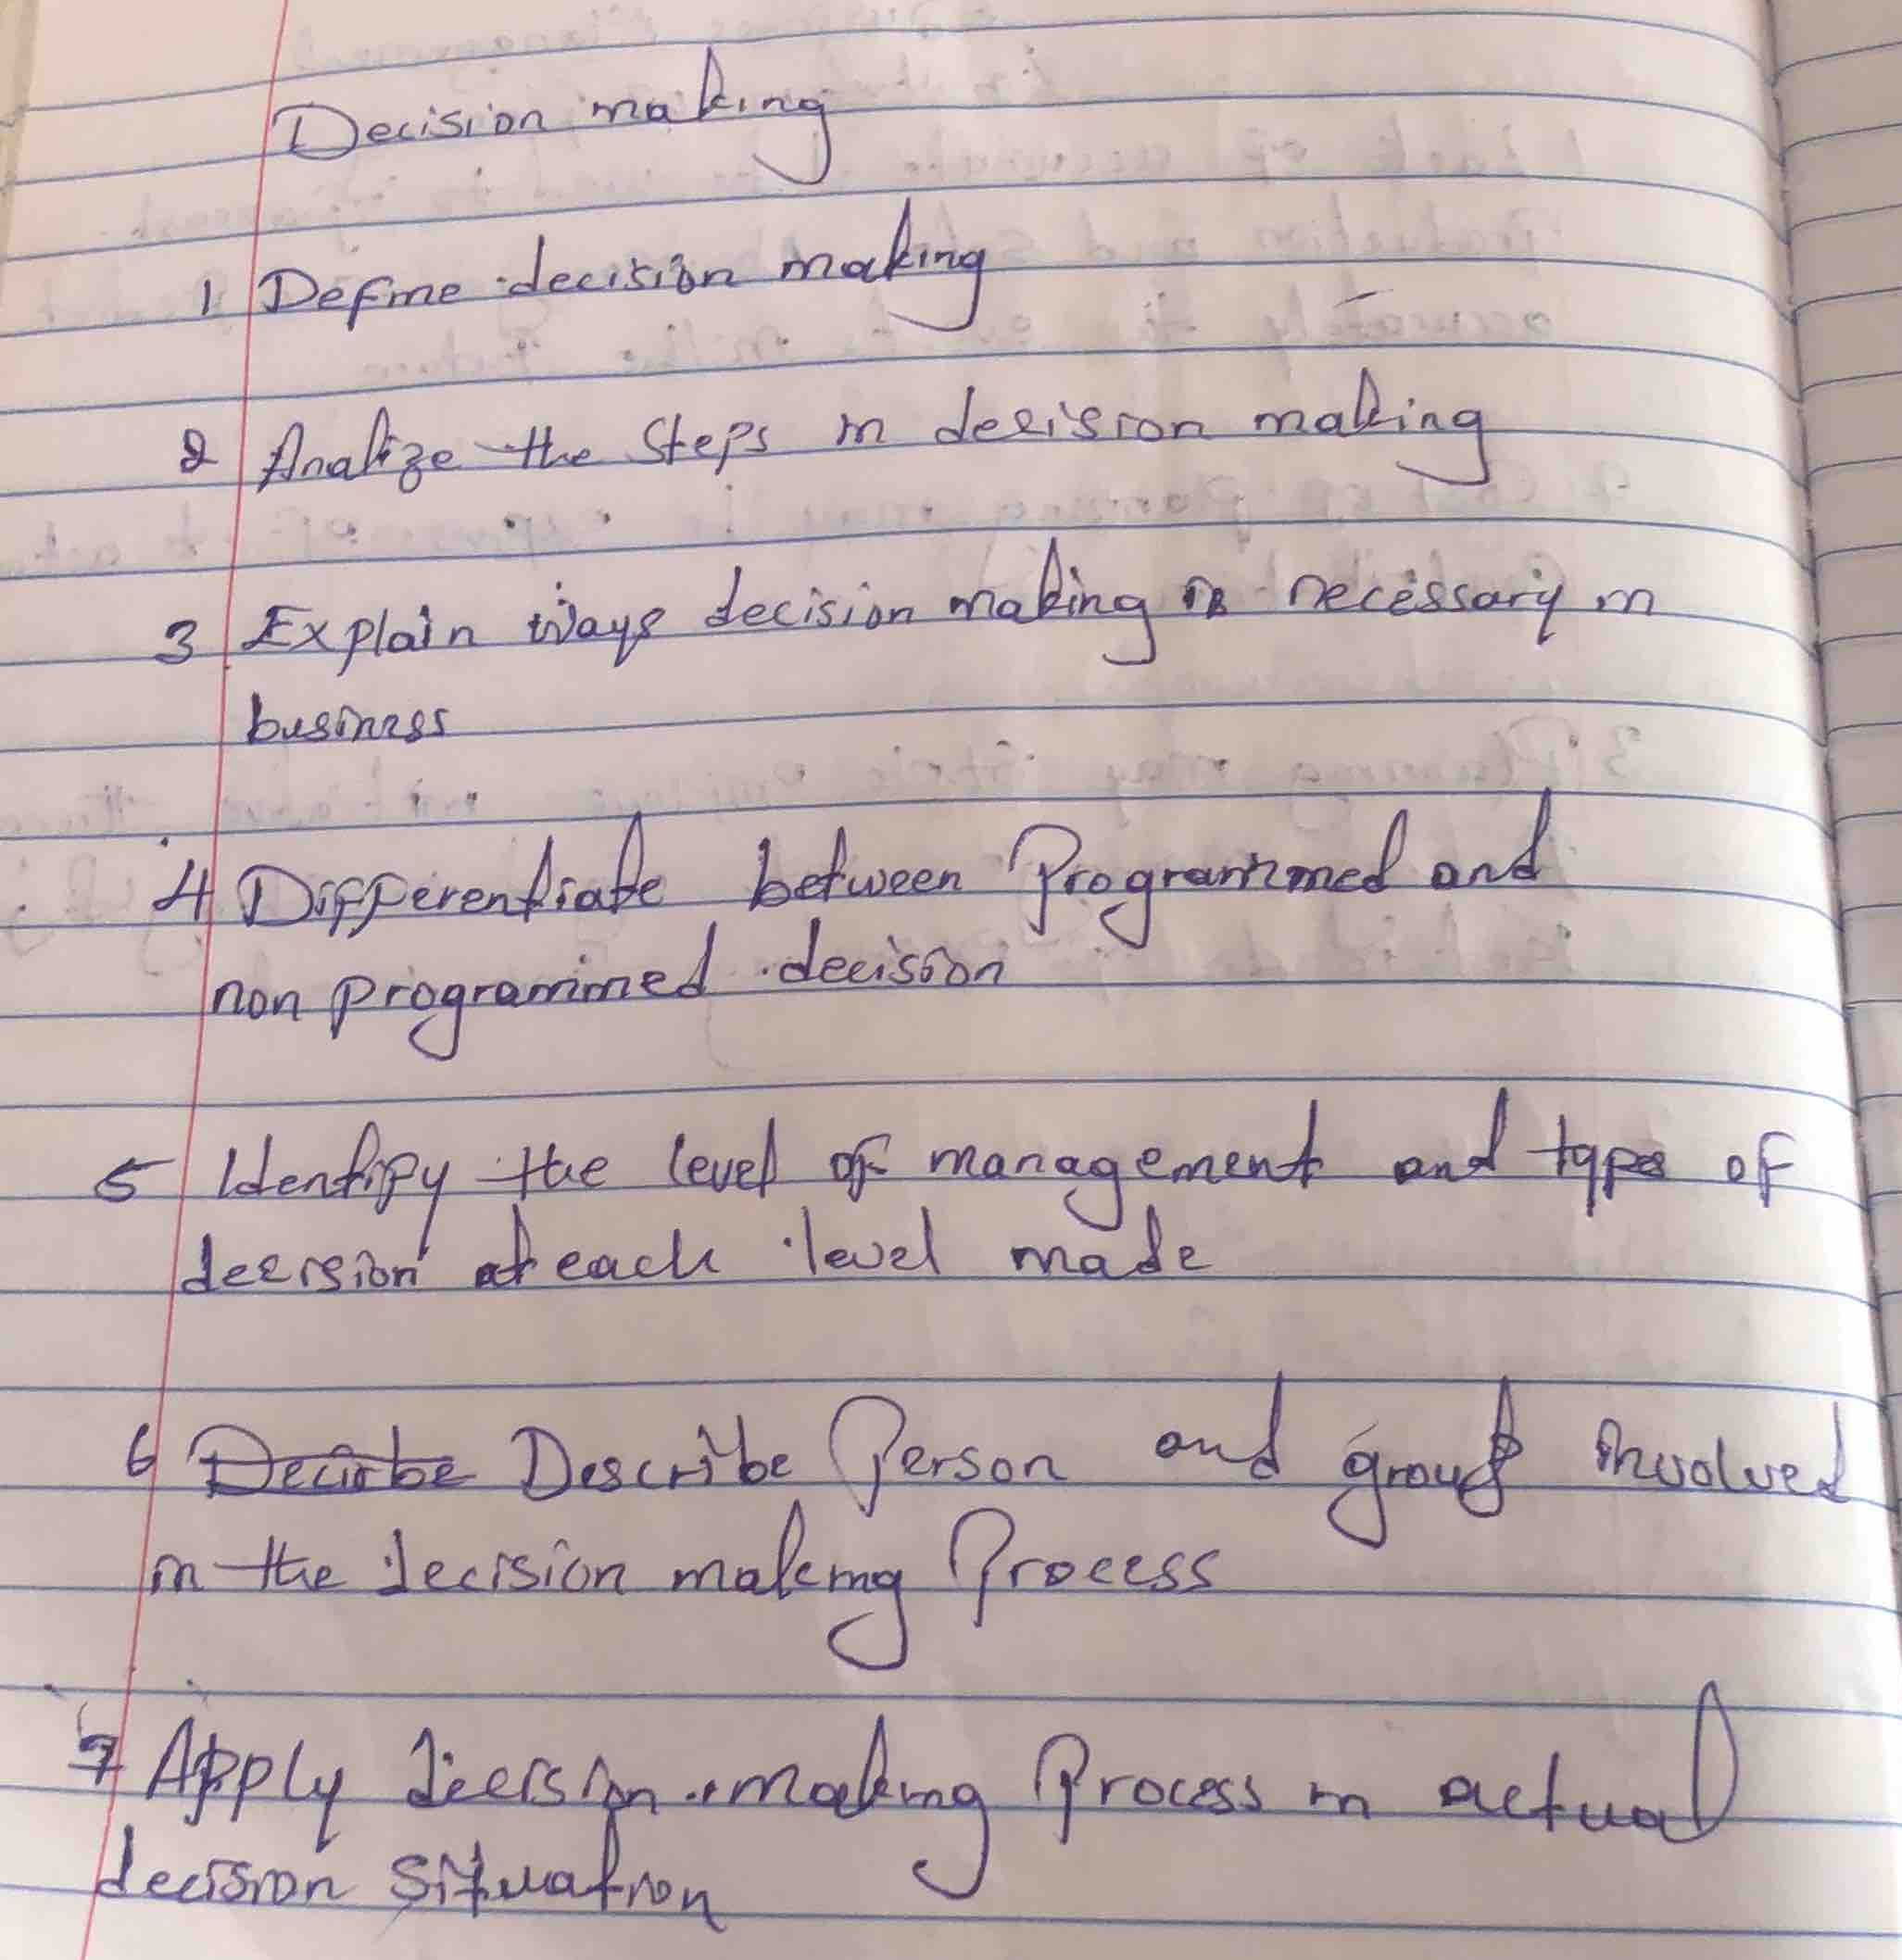 Decision making
1 Define decision making
2 Analize the Steps in decision making
3 Explain ways decision making is necessary in
business
4 Differentiate between Programmed and
non programmed decision
5 Identify the level of management and types of
decision at each level made
6 Decirbe Describe Person and group involved
in the decision making Process
7 Apply decision making Process in actual
decision Situation